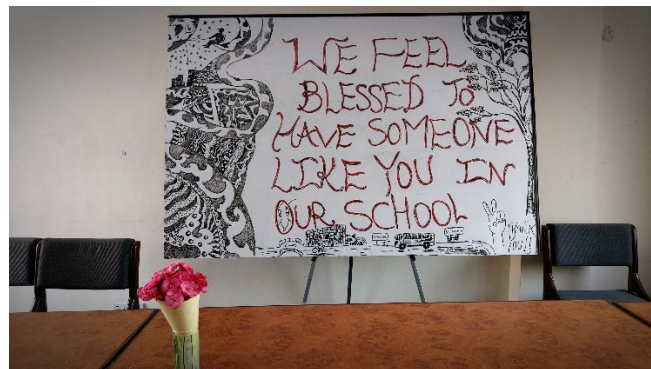 WE FEEL
BLESSED TO
HAVE SOMEONE
LIKE YOU IN
OUR SCHOOL